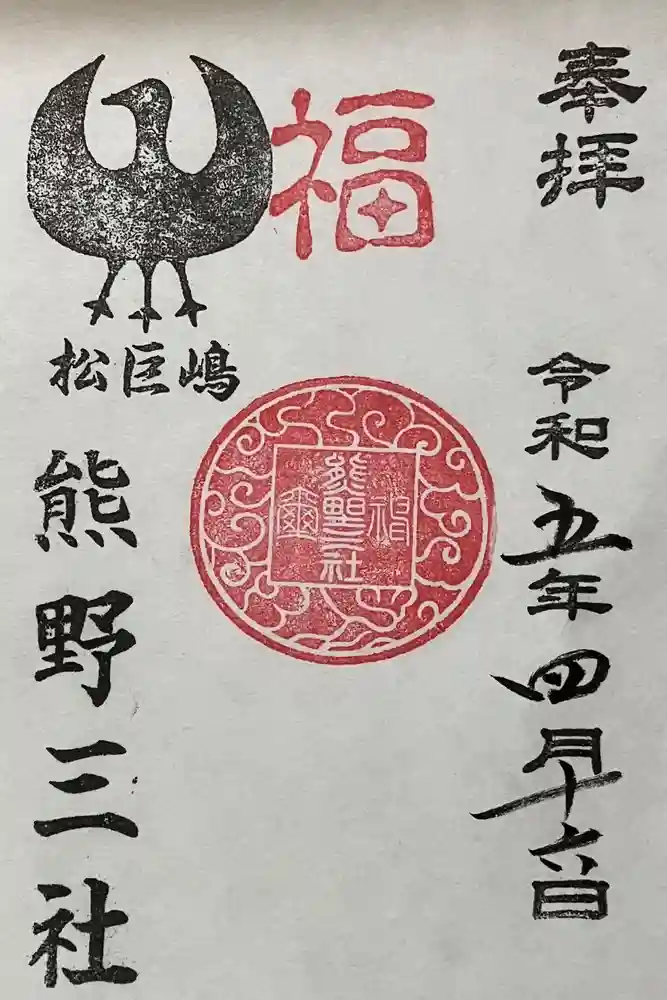 奉拝
令和五年四月十六日
福
松巨嶋
熊野三社
熊野三社